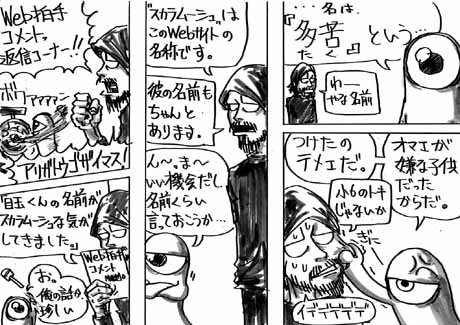 Web拍手
コメント
返信コーナー!!
ボワァァァァン
アリガトウゴザイマス!
「目玉くんの名前が
スカラムーシュな気が
してきました。」
Web拍手
コメント
お。
俺の話か
珍しい
"スカラムーシュ"は
このWebサイトの
名称です。
彼の名前も
ちゃんと
あります。
ん〜。ま〜
いい機会だし
名前くらい
言っておこうか…
…名は、
『多苦』という…
たく
わー
やな名前
つけたの
テメェだ。
小6のトキ
じゃないか
オマエが
嫌な子供
だった
からだ。
イデデデデデ